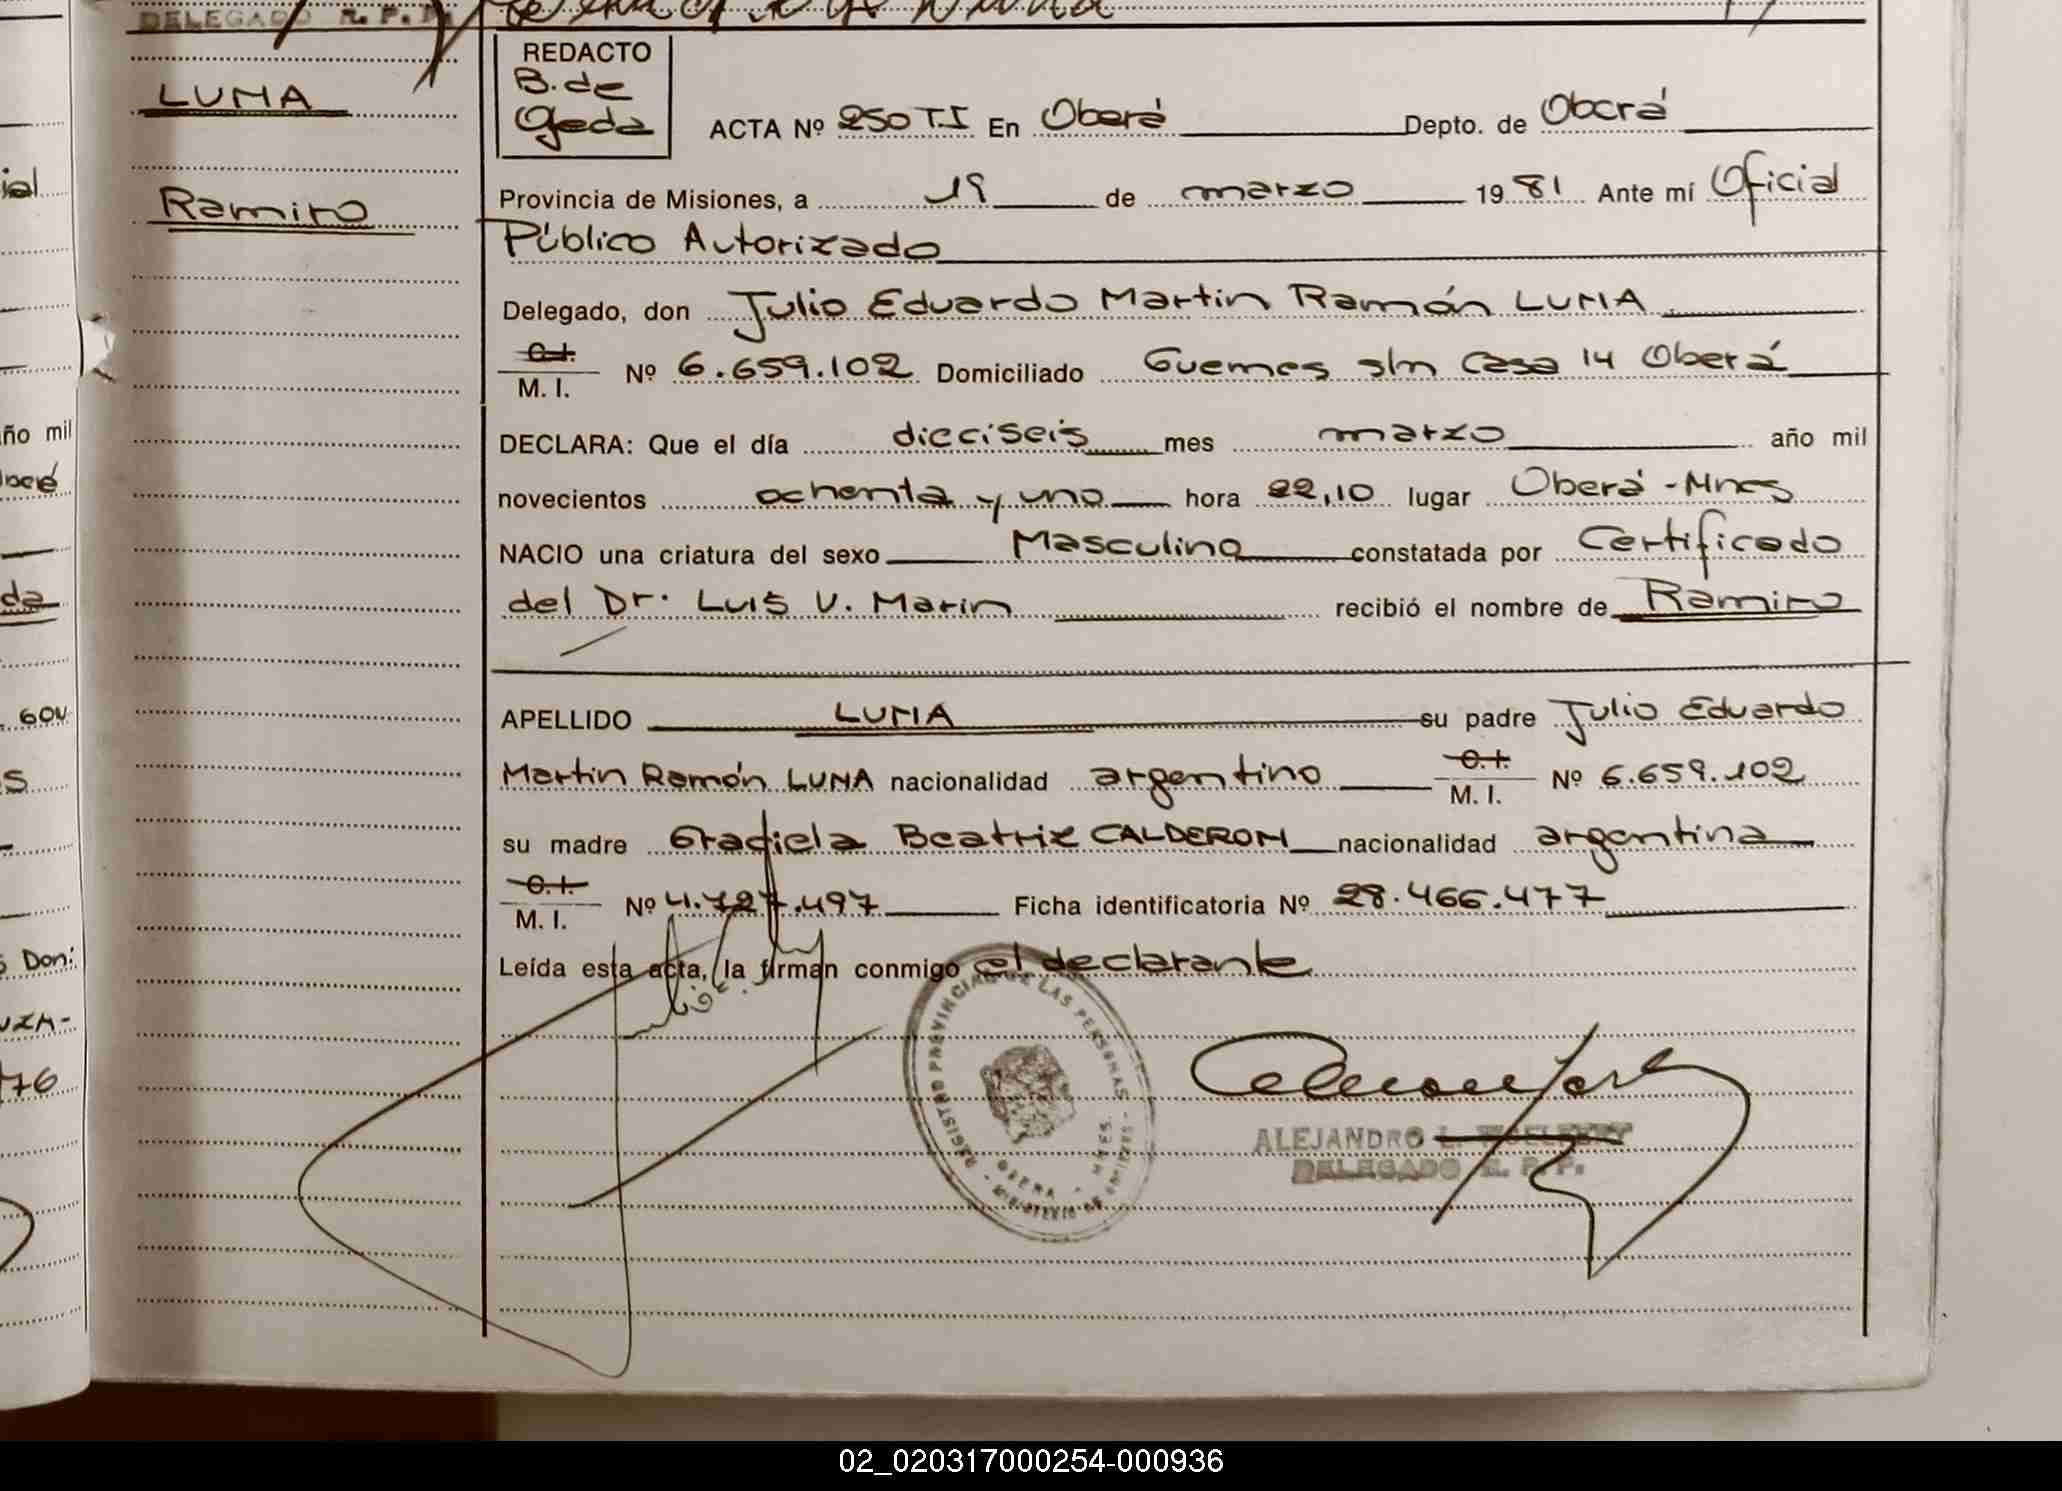 DELEGADO R. P. P.
REDACTO
B. de
Ojeda
LUNA
Ramiro
ACTA Nº 250 T.I En Oberá Depto. de Oberá
Provincia de Misiones, a 19 de marzo 1981 Ante mí Oficial
Público Autorizado
Delegado, don Julio Eduardo Martin Ramón LUNA
C.I.
M. I. Nº 6.659.102 Domiciliado Guemes s/n Casa 14 Oberá
DECLARA: Que el día dieciseis mes marzo año mil
novecientos ochenta y uno hora 22,10 lugar Oberá - Mnes
NACIO una criatura del sexo Masculino constatada por Certificado
del Dr. Luis V. Marin recibió el nombre de Ramiro
APELLIDO LUNA su padre Julio Eduardo
Martin Ramón LUNA nacionalidad argentino C.I. M. I. Nº 6.659.102
su madre Graciela Beatriz CALDERON nacionalidad argentina
C.I.
M. I. Nº 4.727.497 Ficha identificatoria Nº 28.466.477
Leída esta acta, la firman conmigo el declarante
REGISTRO PROVINCIAL DE LAS PERSONAS
OBERA - MNES.
ALEJANDRO L.
DELEGADO R. P. P.
ial
año mil
da
. GOV
S
Don:
UZA-
76
02_020317000254-000936